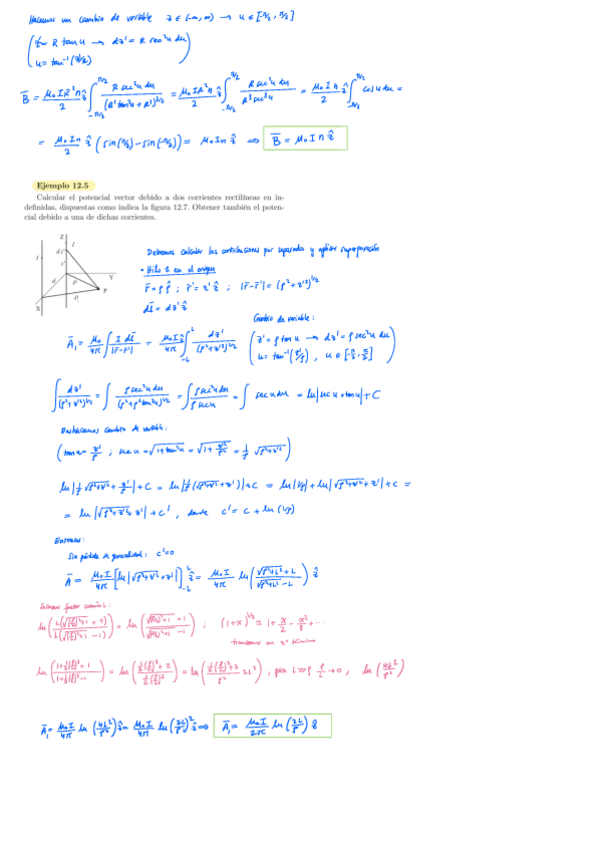 Hacemos un cambio de variable z ∈ (-∞, ∞) → u ∈ [-π/2, π/2]
(z' = R tan u → dz' = R sec²u du)
u = tan⁻¹(z'/R)
B̄ = μ₀IR²n/2 ẑ ∫_{-π/2}^{π/2} R sec²u du/(R²tan²u + R²)^{3/2} = μ₀IR²n/2 ẑ ∫_{-π/2}^{π/2} R sec²u du/R³sec³u = μ₀In/2 ẑ ∫_{-π/2}^{π/2} cos u du =
= μ₀In/2 ẑ (sin(π/2) - sin(-π/2)) = μ₀In ẑ ⇒ B̄ = μ₀In ẑ
Ejemplo 12.5
Calcular el potencial vector debido a dos corrientes rectilíneas en in-
definidas, dispuestas como indica la figura 12.7. Obtener también el poten-
cial debido a una de dichas corrientes.
Z
I
dz'
I
z'
Y
d
ρ
P
X
ρ₁
Debemos calcular las contribuciones por separado y aplicar superposición
• Hilo 1 en el origen
r̄ = ρ ρ̂ ; r̄' = z' ẑ ; |r̄ - r̄'| = (ρ² + z'²)^{1/2}
dl̄ = dz' ẑ
Cambio de variable:
Ā₁ = μ₀/4π ∫ I dl̄/|r̄ - r̄'| = μ₀I ẑ/4π ∫_{-L}^{L} dz'/(ρ² + z'²)^{1/2} (z' = ρ tan u → dz' = ρ sec²u du)
u = tan⁻¹(z'/ρ) , u ∈ [-π/2, π/2]
∫ dz'/(ρ² + z'²)^{1/2} = ∫ ρ sec²u du/(ρ² + ρ²tan²u)^{1/2} = ∫ ρ sec²u du/ρ sec u = ∫ sec u du = ln|sec u + tan u| + C
Deshacemos cambio de variable:
(tan u = z'/ρ ; sec u = √(1 + tan²u) = √(1 + z'²/ρ²) = 1/ρ √(ρ² + z'²))
ln|1/ρ √(ρ² + z'²) + z'/ρ| + C = ln|1/ρ (√(ρ² + z'²) + z')| + C = ln|1/ρ| + ln|√(ρ² + z'²) + z'| + C =
= ln|√(ρ² + z'²) + z'| + C' , donde C' = C + ln(1/ρ)
Entonces:
Sin pérdida de generalidad: C' = 0
Ā = μ₀I/4π [ln|√(ρ² + z'²) + z'|]_{-L}^{L} ẑ = μ₀I/4π ln(√(ρ² + L²) + L/√(ρ² + L²) - L) ẑ
factor común L:
ln(L(√((ρ/L)² + 1) + 1)/L(√((ρ/L)² + 1) - 1)) = ln(√((ρ/L)² + 1) + 1/√((ρ/L)² + 1) - 1) ; (1 + x)^{1/2} ≈ 1 + x/2 - x²/8 + ...
ln(1 + ½(ρ/L)² + 1/1 + ½(ρ/L)² - 1) = ln(½(ρ/L)² + 2/½(ρ/L)²) = ln(½(ρ/L)² + 2/ρ² 2L²) , para L≫ρ ρ/L → 0 , ln(4L²/ρ²)
Ā₁ = μ₀I/4π ln(4L²/ρ²) ẑ = μ₀I/4π ln(2L/ρ)² ẑ ⇒ Ā₁ = μ₀I/2π ln(2L/ρ) ẑ